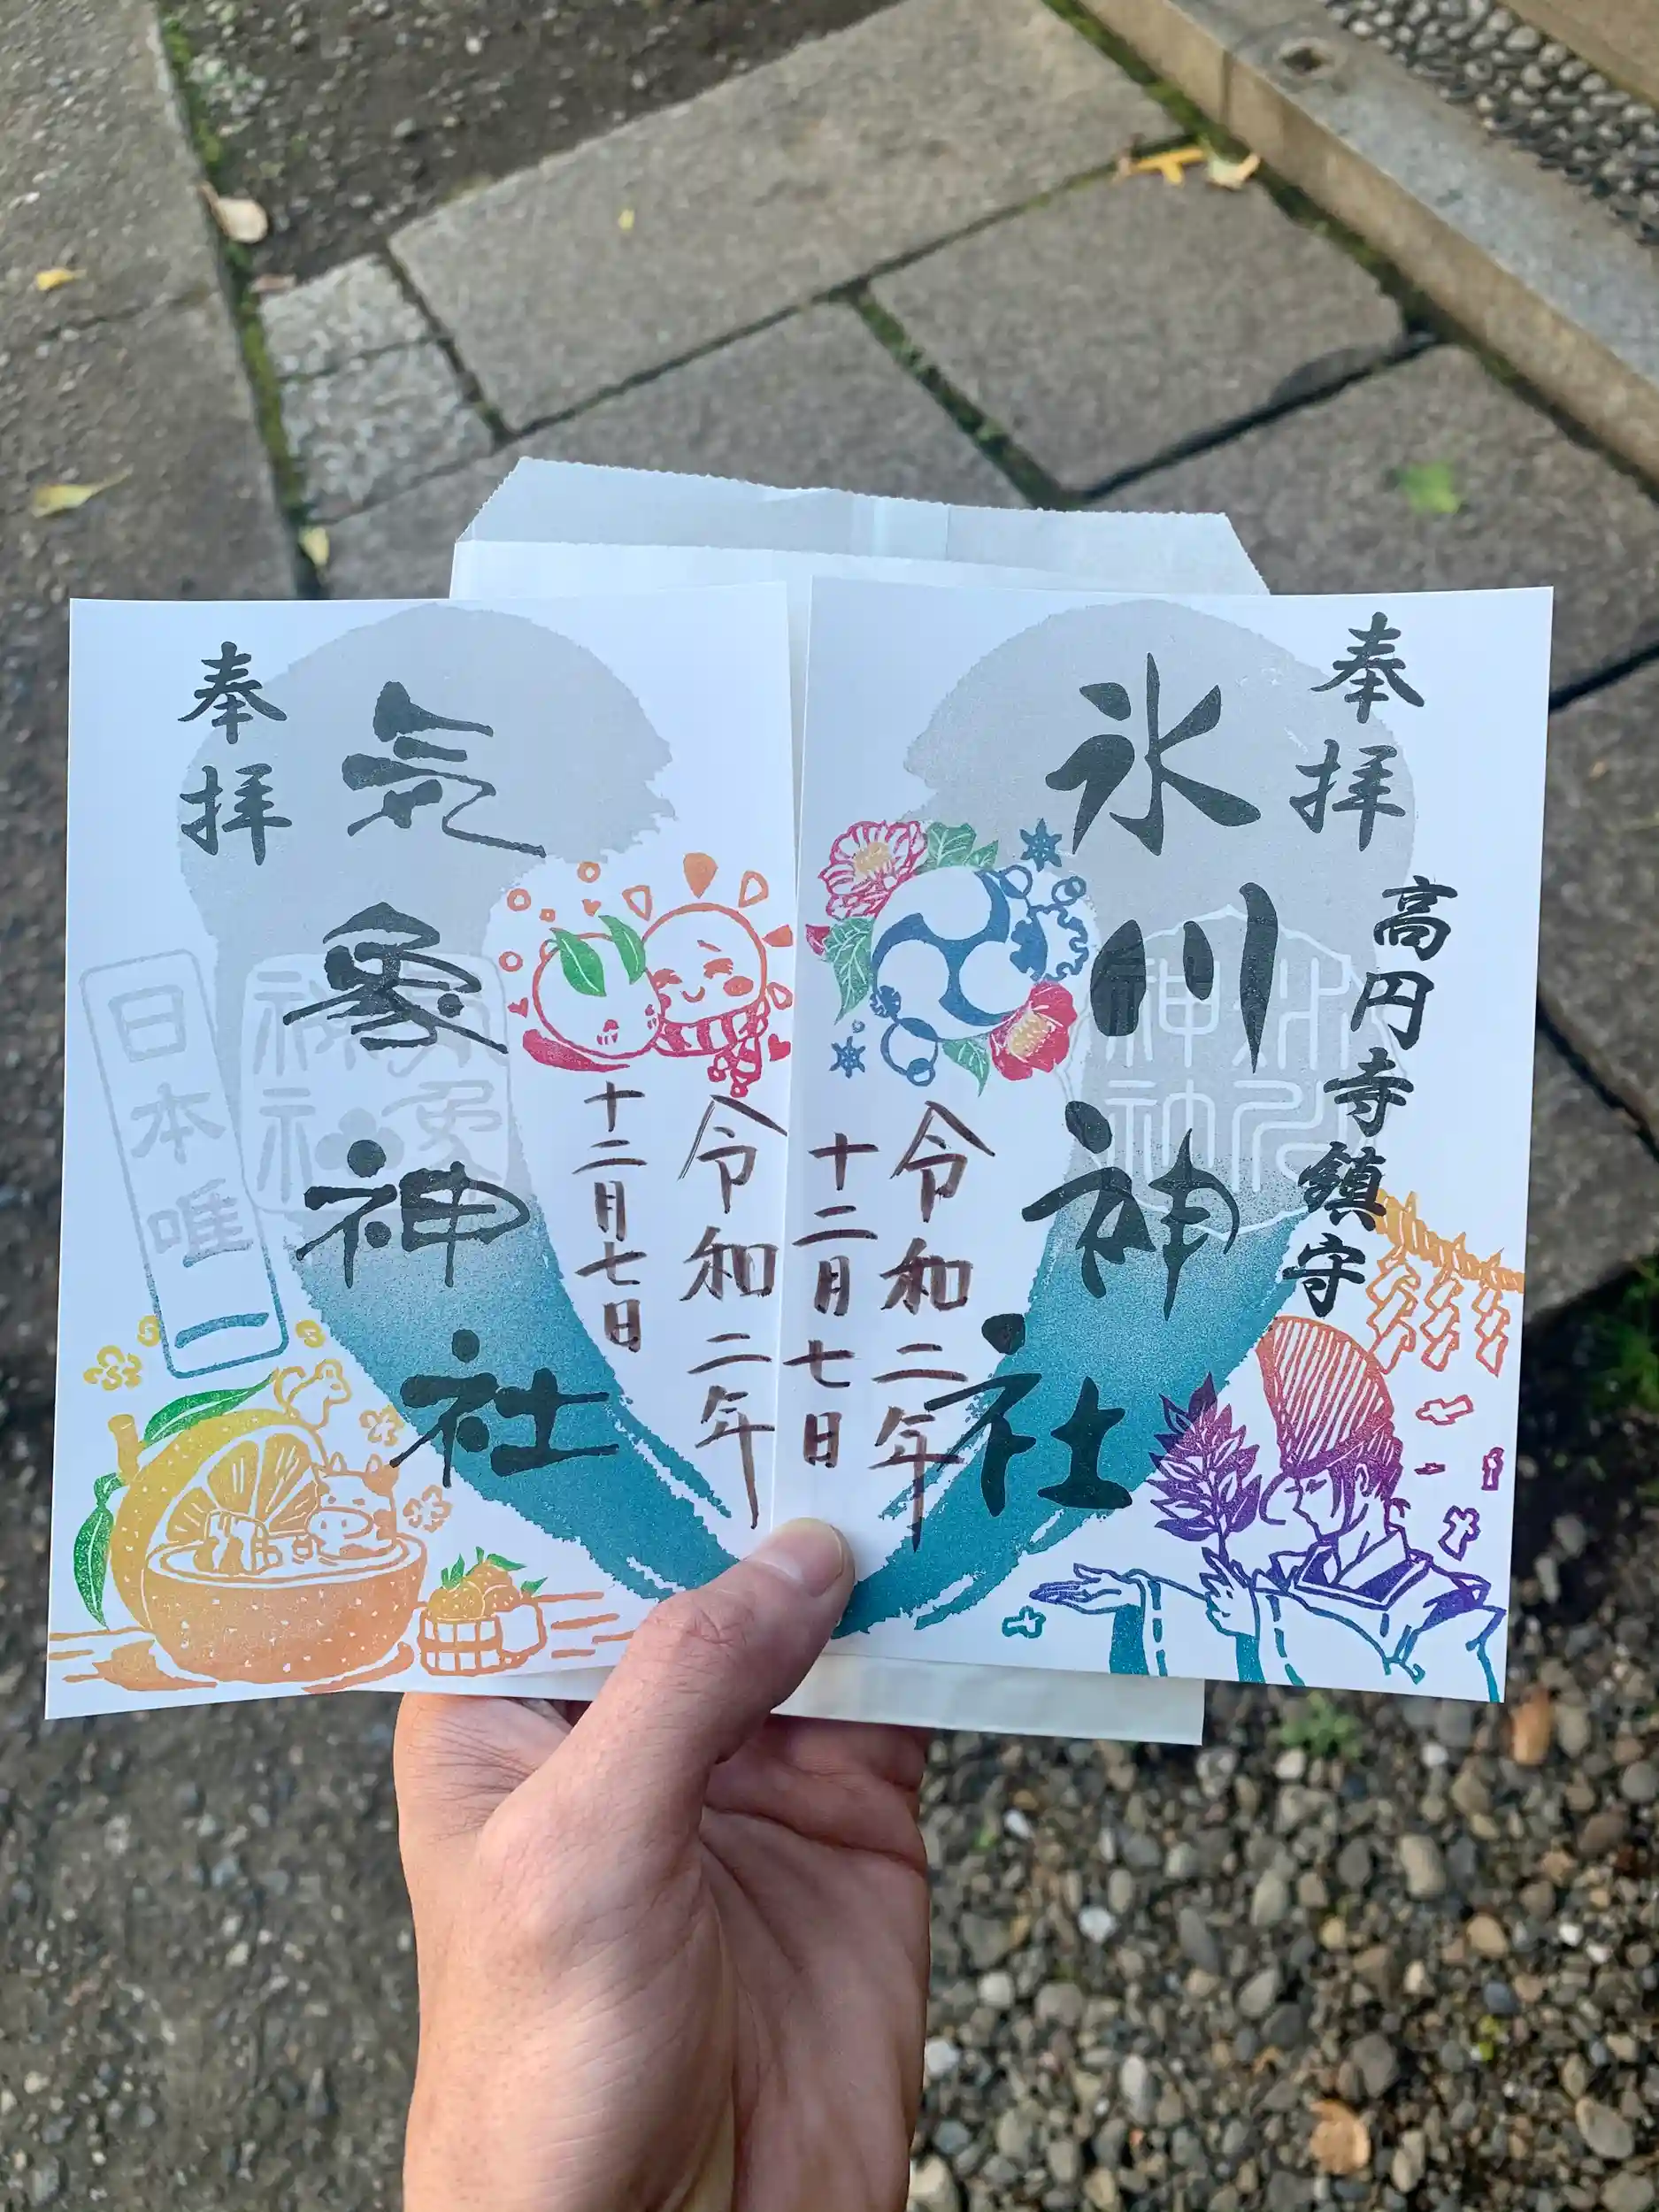 奉拝
高円寺鎮守
氷川神社
令和二年
十二月七日
奉拝
気象神社
日本唯一
令和二年
十二月七日